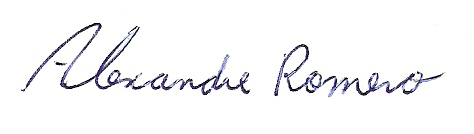 Alexandre Romero